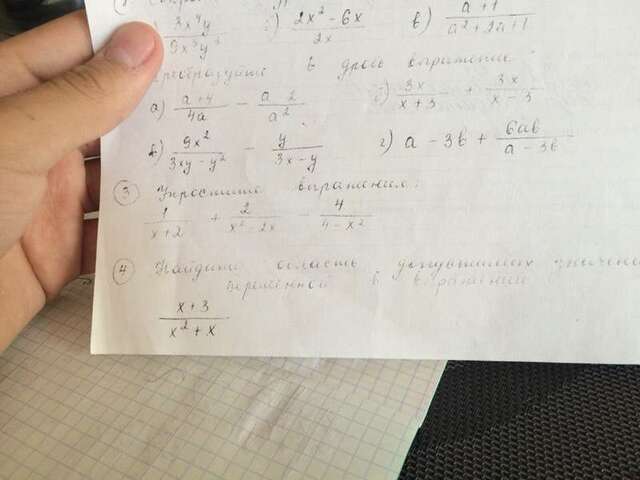 б) 2x² - 6x / 2x в) a + 1 / a² + 2a + 1
в дробь выражение
а) a + 4 / 4a - a 2 / a² б) 3x / x + 3 + 3x / x - 3
в) 9x² / 3xy - y² - y / 3x - y г) a - 3b + 6ab / a - 3b
3 Упростите выражение:
1 / x + 2 + 2 / x² - 2x - 4 / 4 - x²
4 Найдите область допустимых значений
переменной в выражении
x + 3 / x² + x